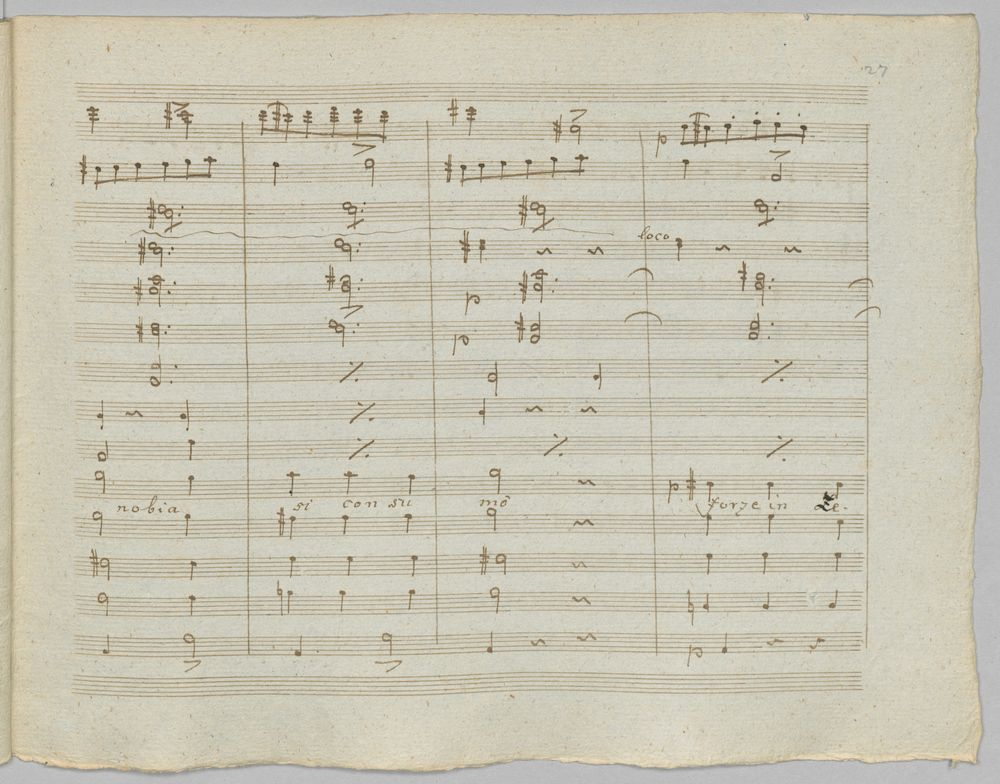 27
p
loco
p
p
p
nobia si con su mò forze in Le-
p